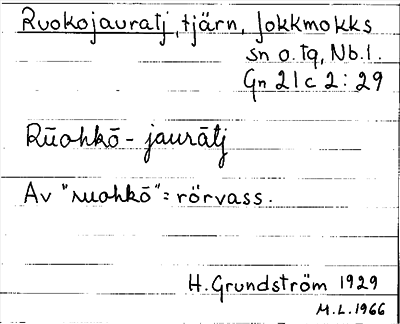 Ruokojauratj, tjärn, Jokkmokks
sn o. tg, Nb. l.
Gn 21 c 2:29
Rūohkō- jaurātj
Av "ruohkō" = rörvass.
H. Grundström 1929
M.L. 1966